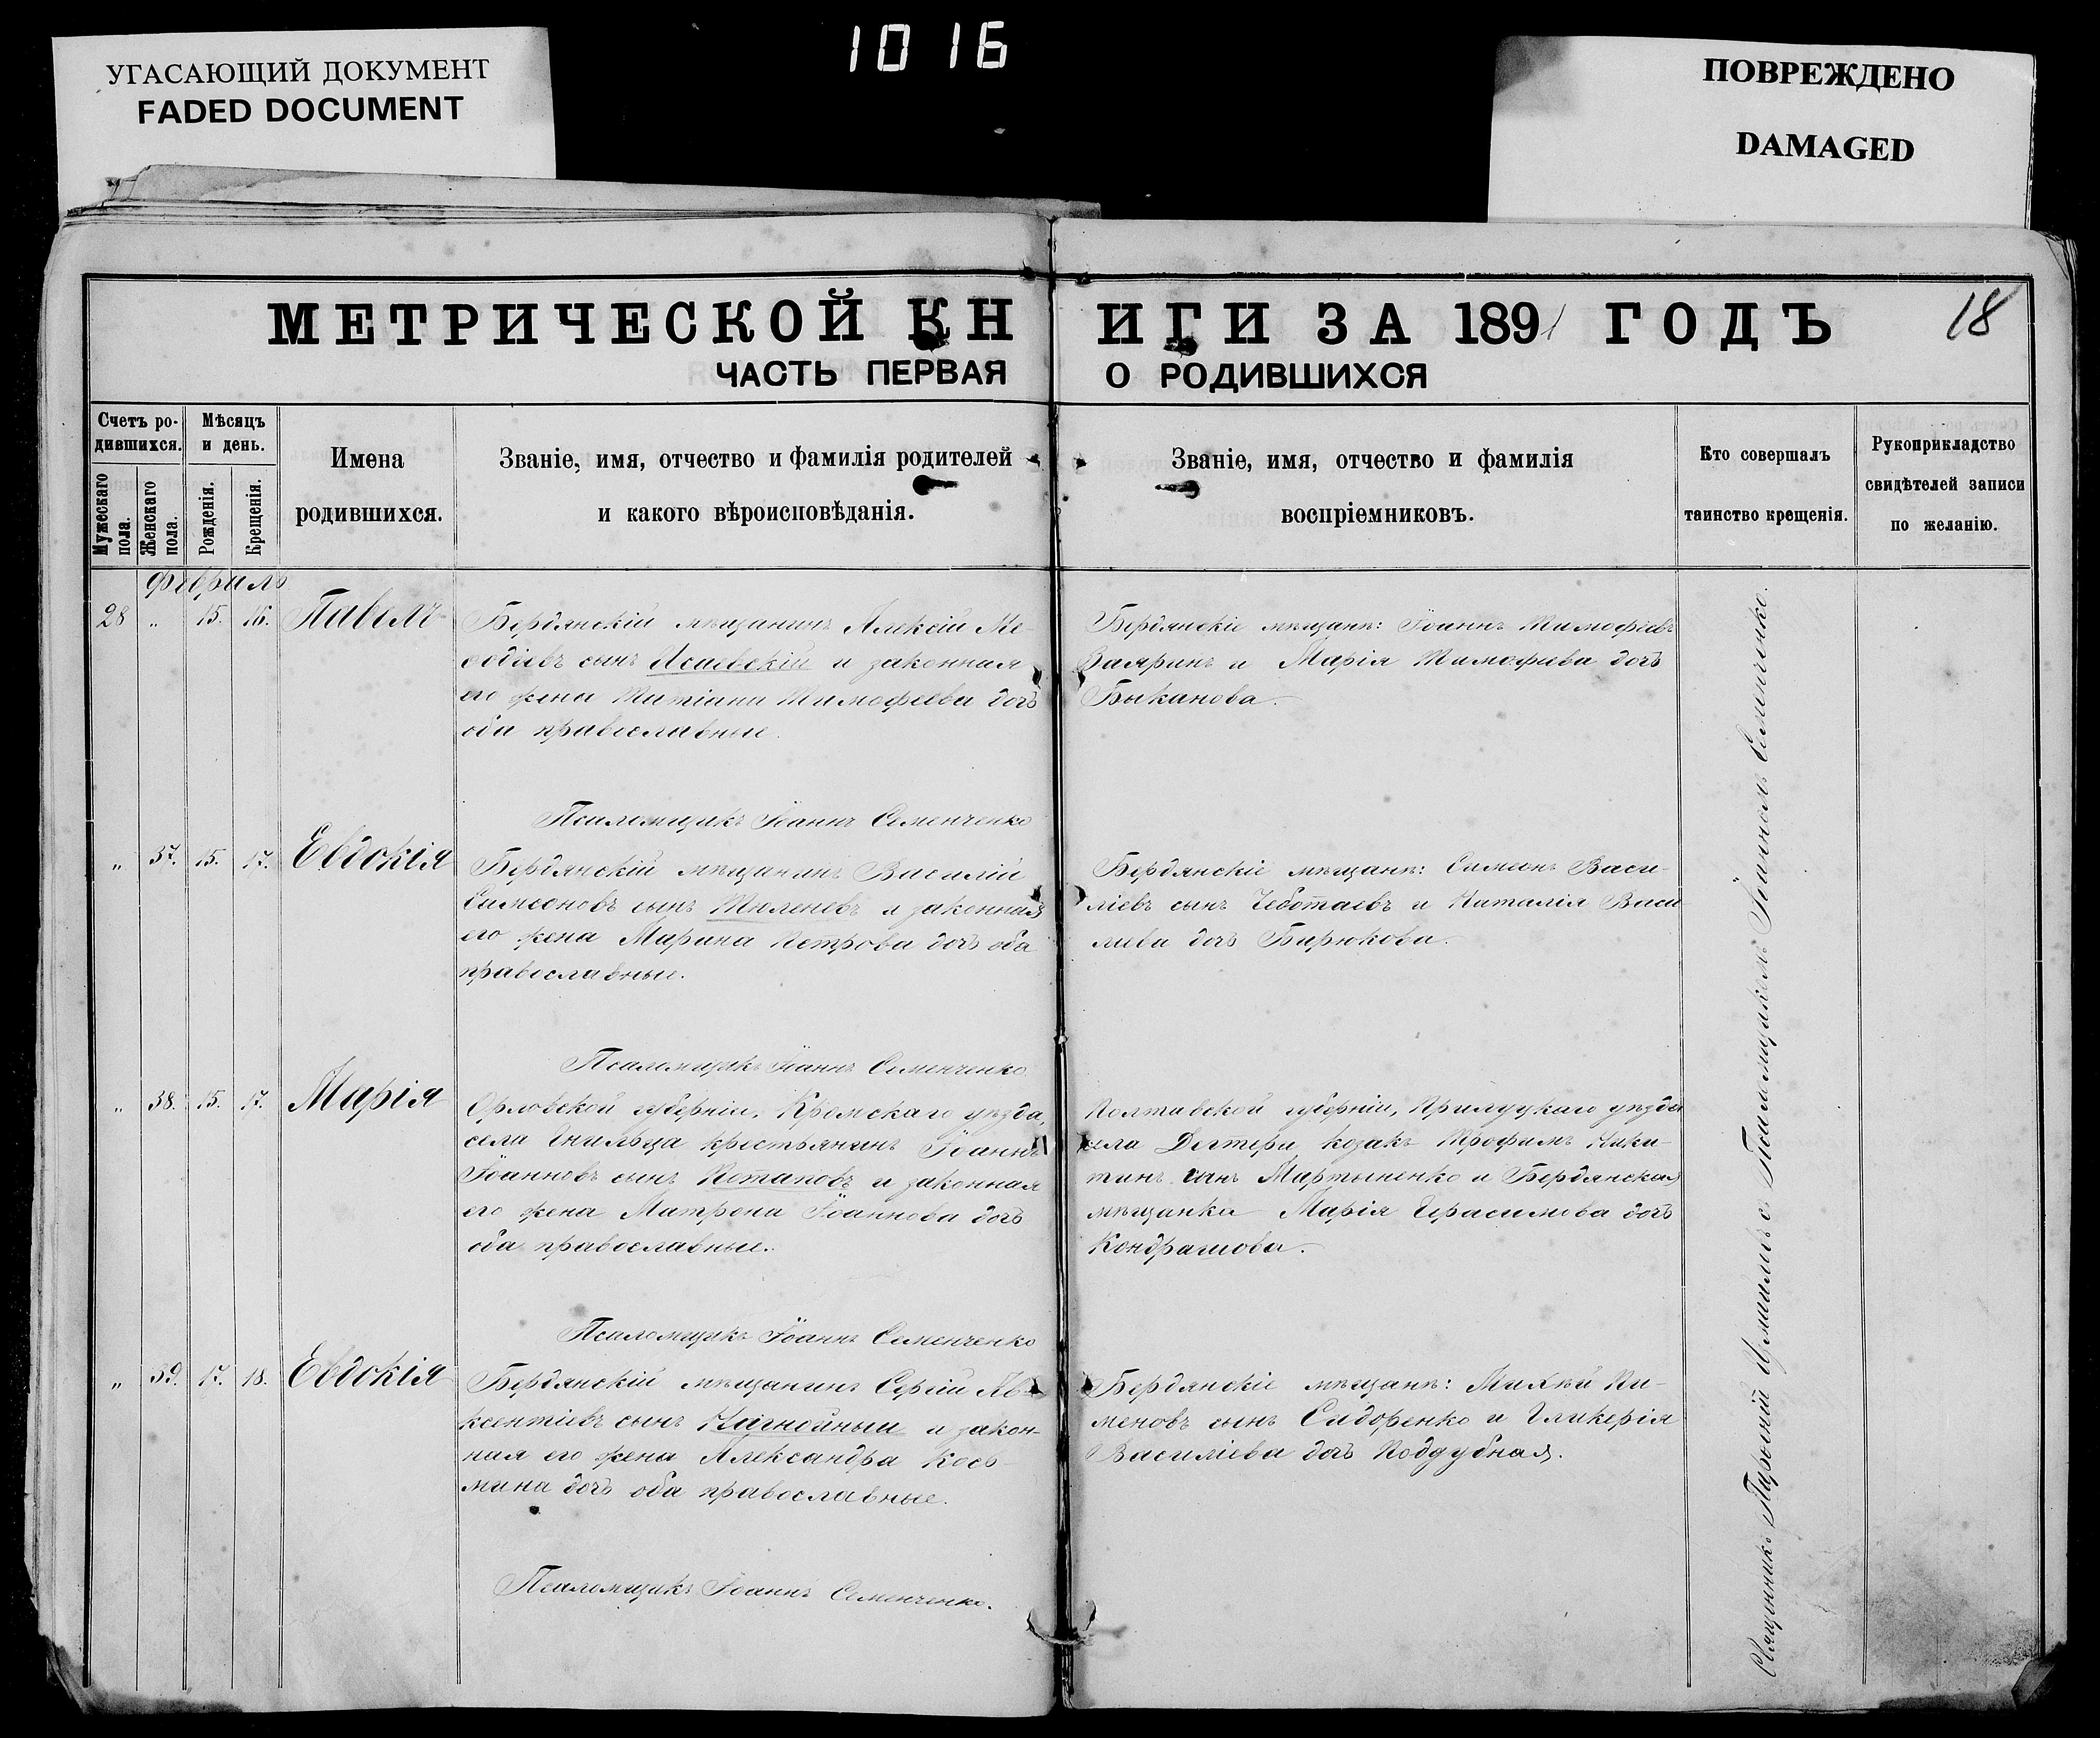 УГАСАЮЩИЙ ДОКУМЕНТ
FADED DOCUMENT
10 16
ПОВРЕЖДЕНО
DAMAGED
МЕТРИЧЕСКОЙ КНИГИ ЗА 1891 ГОДЪ
18
ЧАСТЬ ПЕРВАЯ О РОДИВШИХСЯ
Счетъ ро-
дившихся.
Мужескаго
пола.
Женскаго
пола.
Мѣсяцъ
и день.
Рожденія.
Крещенія.
Имена
родившихся.
Званіе, имя, отчество и фамилія родителей
и какого вѣроисповѣданія.
Званіе, имя, отчество и фамилія
воспріемниковъ.
Кто совершалъ
таинство крещенія.
Рукоприкладство
свидѣтелей записи
по желанію.
Февраль
28 " 15. 16. Павелъ
Бердянскій мѣщанинъ Алексій Ме-
ѳодіевъ сынъ Ясиевскій и законная
его жена Татіана Тимофеева дочь
оба православные.
Бердянскіе мѣщане: Іоаннъ Тимофіевъ
Заяринъ и Марія Тимофеева дочь
Быканова.
Псаломщикъ Іоаннъ Семенченко
" 37. 15. 17. Евдокія
Бердянскій мѣщанинъ Василій
Симеоновъ сынъ Тюленевъ и законная
его жена Марина Петрова дочь оба
православные.
Бердянскіе мѣщане: Симеонъ Васи-
ліевъ сынъ Чеботаевъ и Наталія Васи
лиева дочь Бирюкова.
Псаломщикъ Іоаннъ Семенченко
" 38. 15. 17. Марія
Орловской губерніи, Кромскаго уѣзда,
села Гнильца крестьянинъ Іоаннъ
Іоанновъ сынъ Потаповъ и законная
его жена Матрона Іоаннова дочь
оба православные.
Полтавской губерніи, Прилуцкаго уѣзда
села Дехтери козакъ Трофимъ Ники-
тинъ сынъ Мартыненко и Бердянская
мѣщанка Марія Герасимова дочь
Кондрашова.
Псаломщикъ Іоаннъ Семенченко
" 39. 17. 18. Евдокія
Бердянскій мѣщанинъ Сергій Ав-
ксентіевъ сынъ и закон-
ная его жена Александра Кось-
мина дочь оба православные.
Бердянскіе мѣщане: Михѣй Пи-
меновъ сынъ Сидоренко и Гликерія
Василіева дочь Поддубная.
Псаломщикъ Іоаннъ Семенченко.
Священникъ съ Псаломщикомъ Іоанномъ Семенченко.